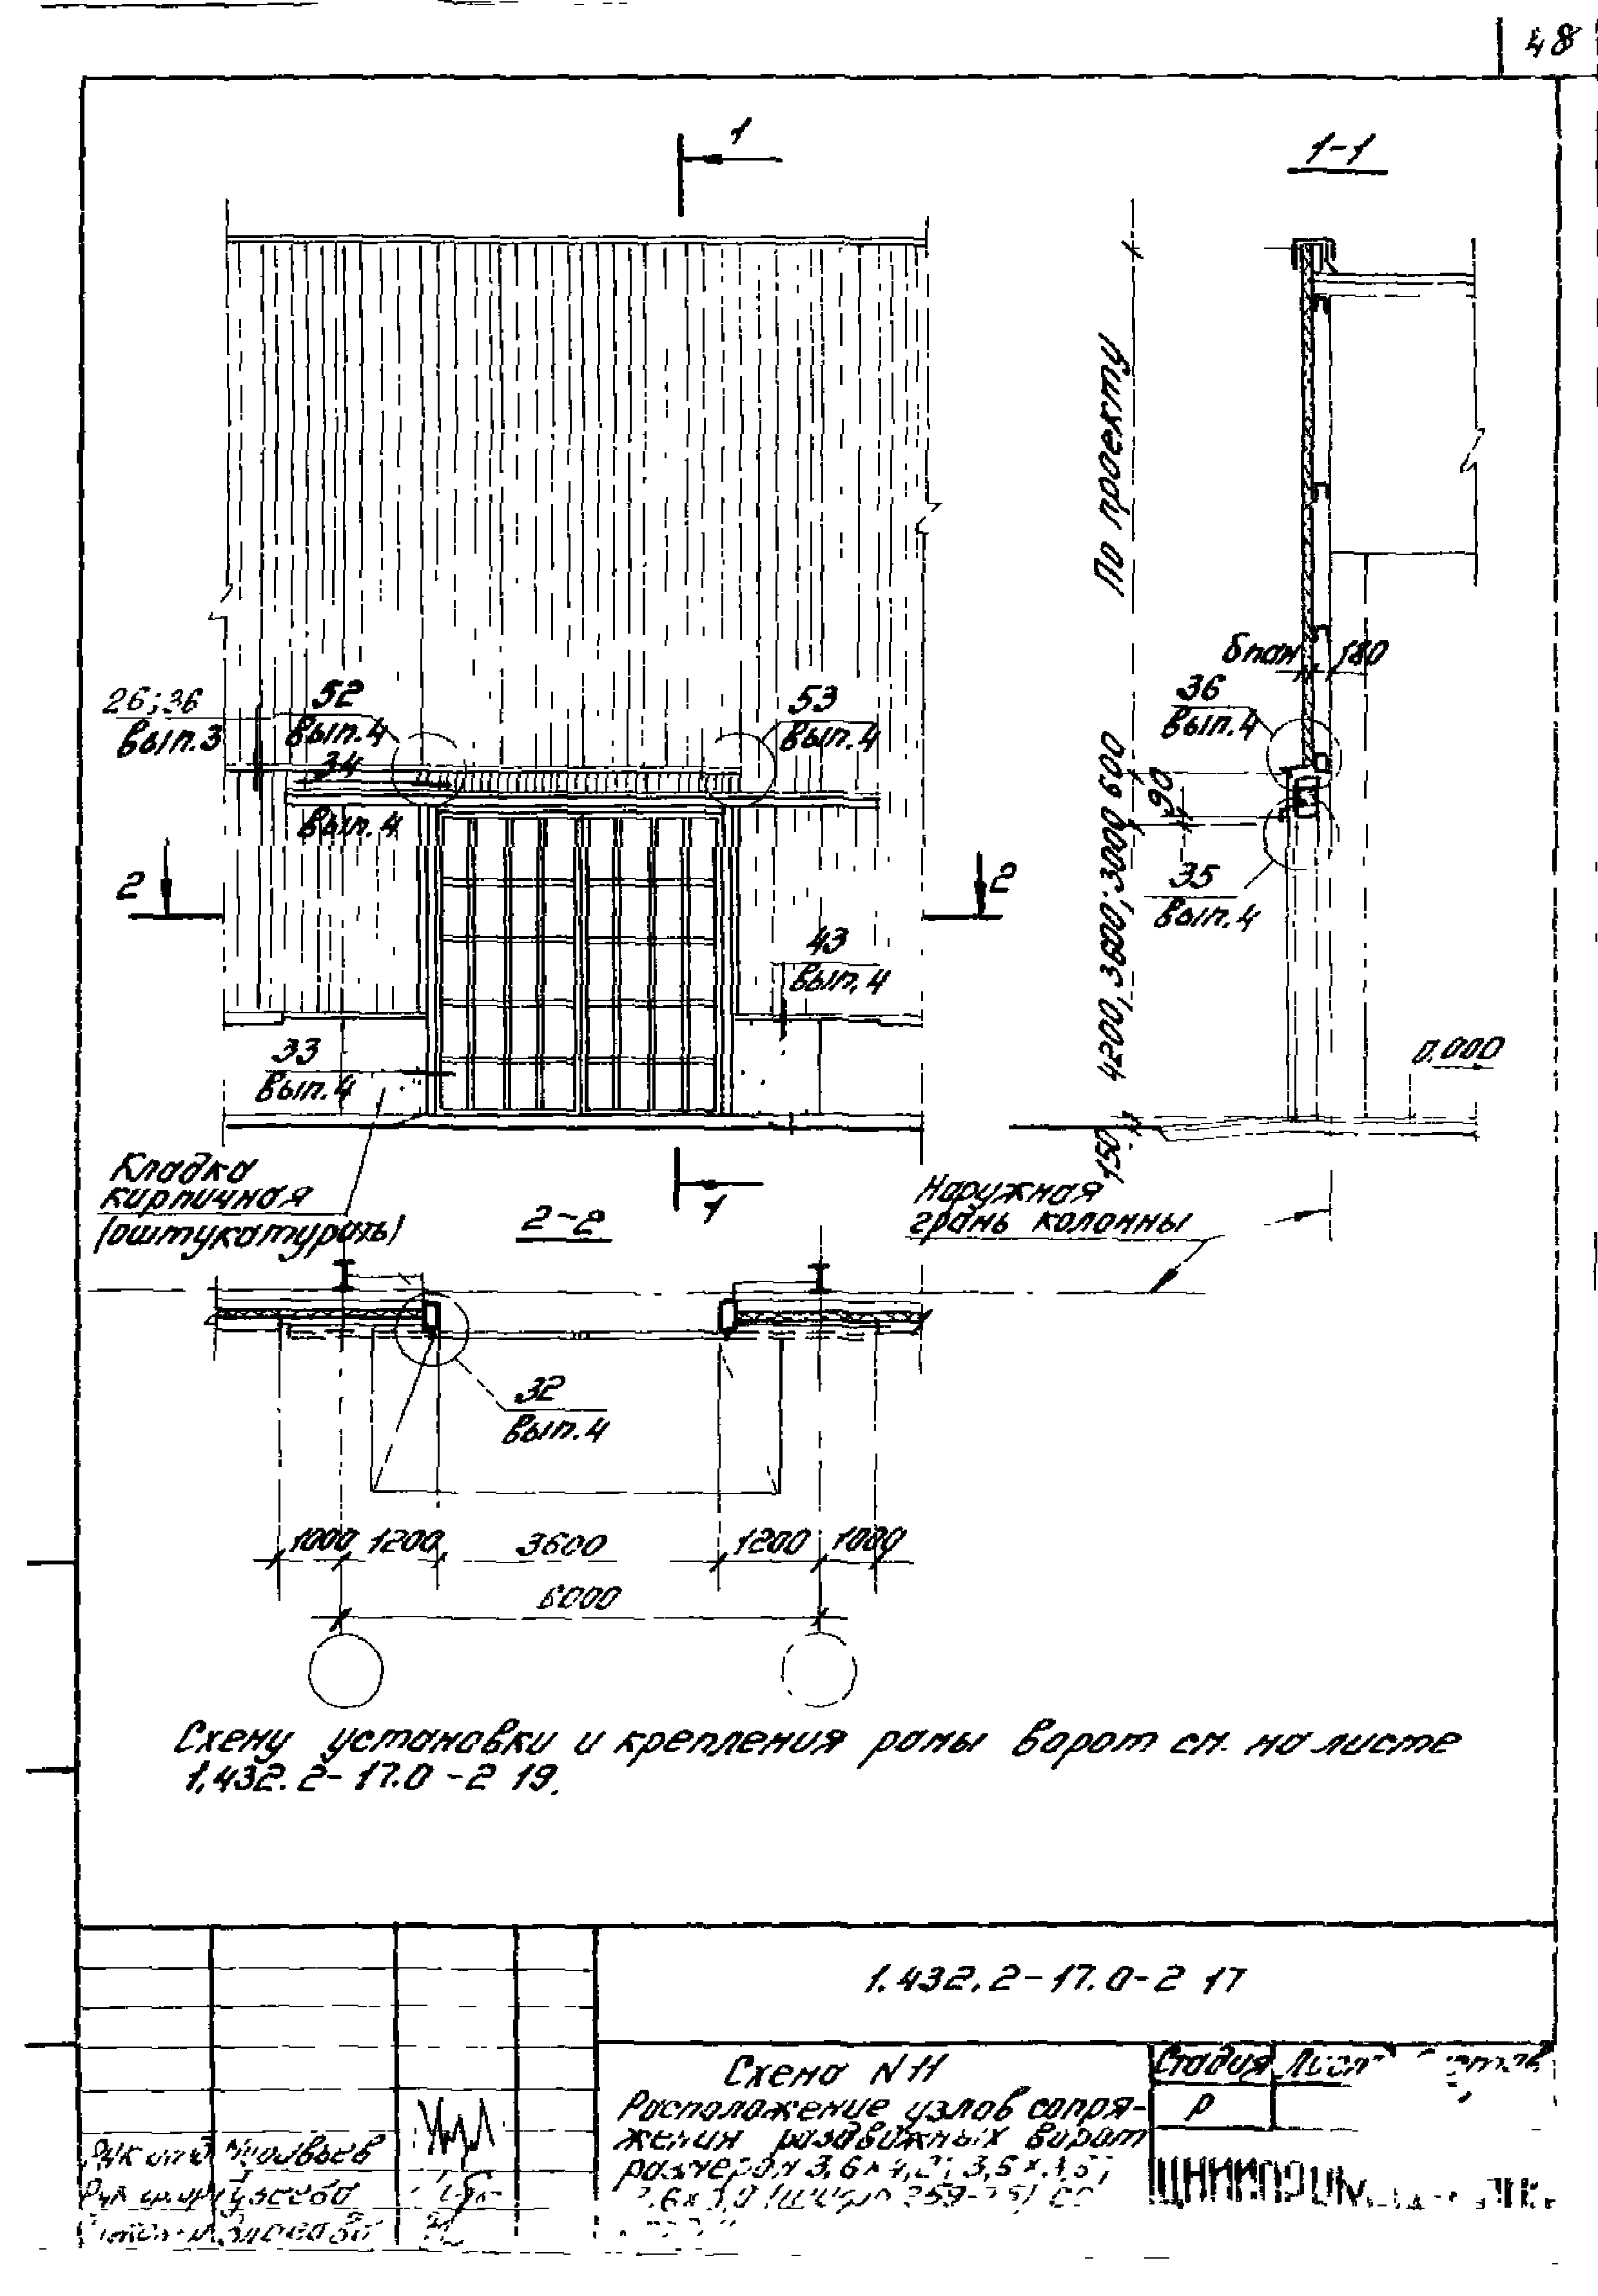 48
1
1-1
По проекту
бпан 180
26; 36
вып.3
52
вып.4
34
вып.4
53
вып.4
36
вып.4
600
90
4200; 3600; 3000
35
вып.4
2
2
43
вып.4
33
вып.4
0.000
150
Кладка
кирпичная
(оштукатурать)
1
2-2
Наружная
грань колонны
32
вып.4
1000 1200 3600 1200 1000
6000
Схему установки и крепления рамы ворот см. на листе
1.432.2-17.0-2 19.
1.432.2-17.0-2 17
Схема N11
Расположение узлов сопря-
жения раздвижных ворот
размером 3,6×4,2;
Стадия Лист
Р